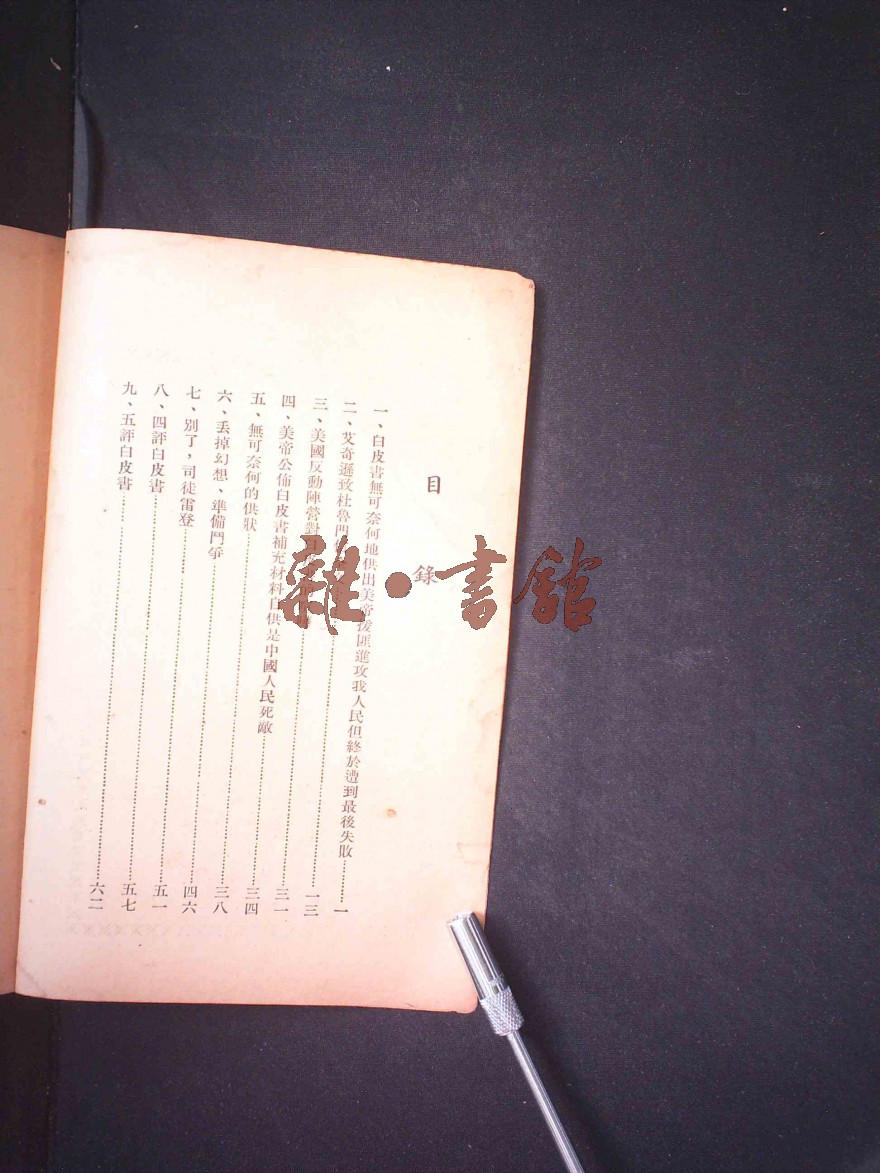 目錄
一、白皮書無可奈何地供出美帝援匪進攻我人民但終於遭到最後失敗…………一
二、艾奇遜致杜魯門…………一三
三、美國反動陣營對…………三一
四、美帝公佈白皮書補充材料自供是中國人民死敵…………三四
五、無可奈何的供狀…………三八
六、丟掉幻想、準備鬥爭…………四六
七、別了，司徒雷登…………五一
八、四評白皮書…………五七
九、五評白皮書…………六二
雜•書館